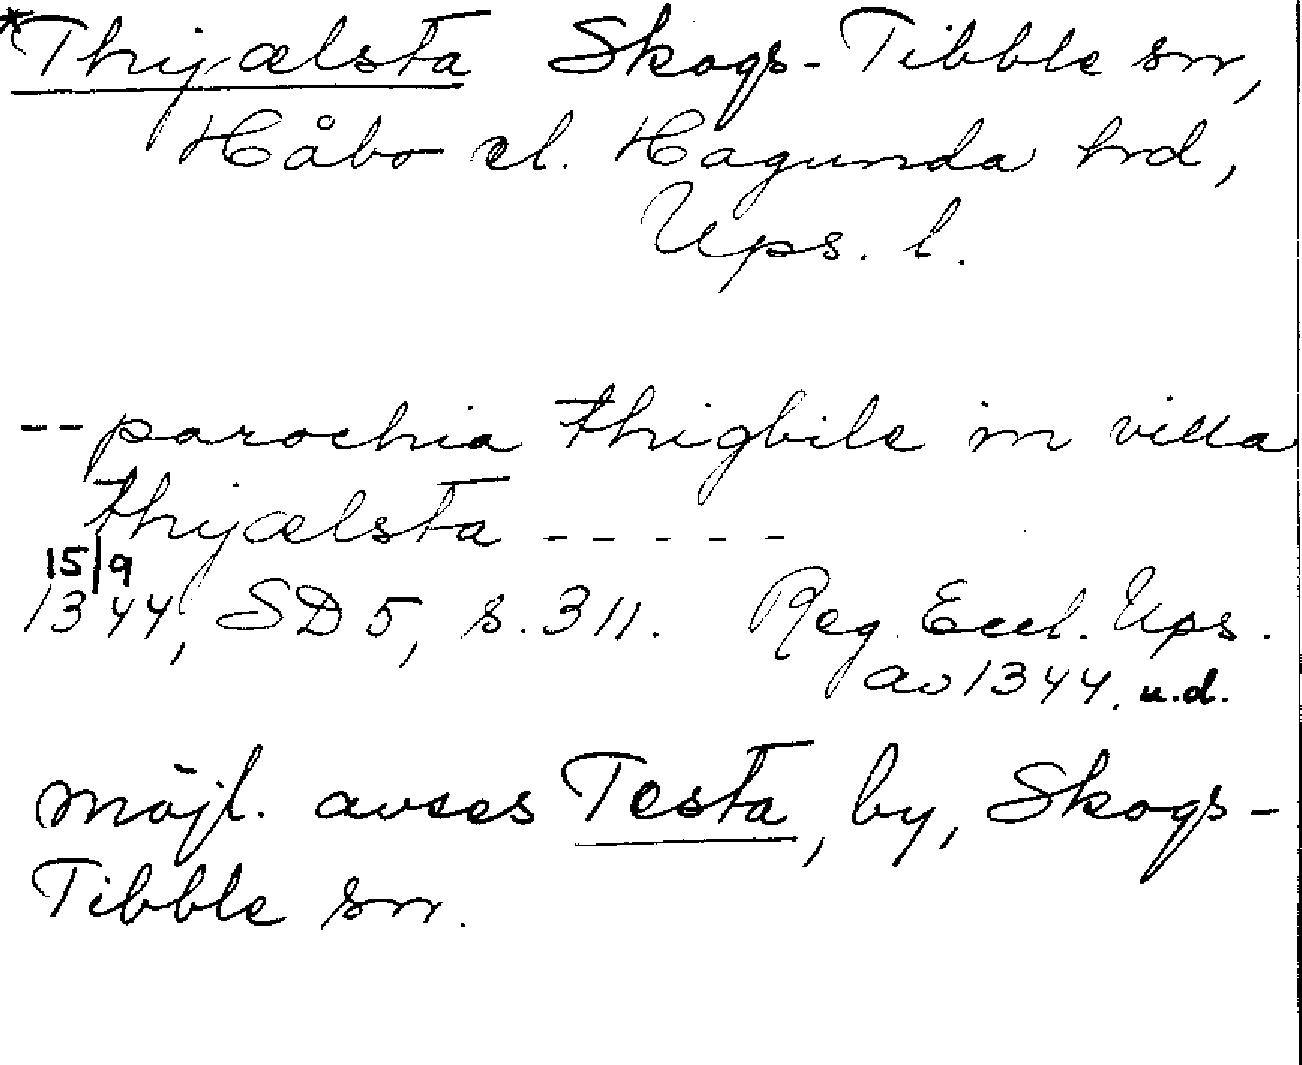 *Thijælsta Skogs-Tibble sn,
Håbo el. Hagunda hd,
Ups. l.
-- parochia thigbile in villa
thijælsta - - - - -
15/9
1344, SD 5, s. 311. Reg. Eccl. Ups.
av 1344. u.d.
möjl. avses Testa, by, Skogs-
Tibble sn.